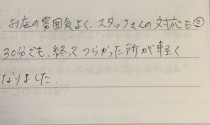 お店の雰囲気よく、スタッフさんの対応も◎
30分でも、終えてつらかった所が軽く
なりました。